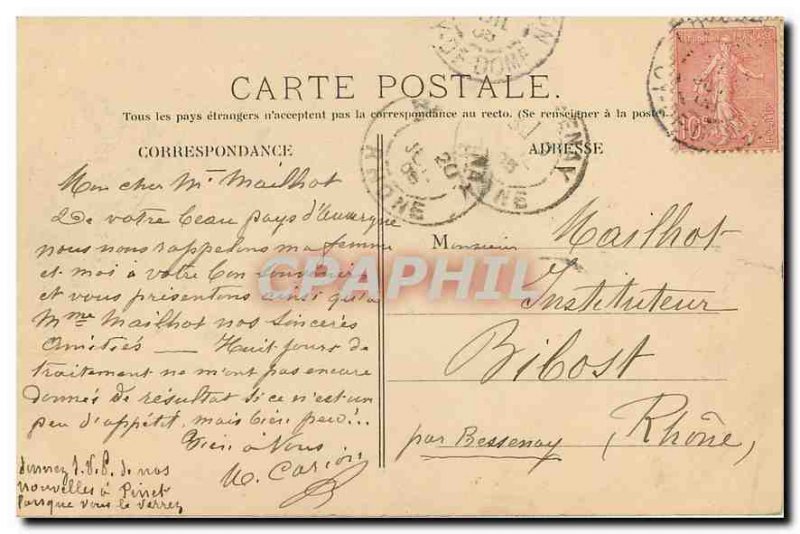 CARTE POSTALE.
Tous les pays étrangers n'acceptent pas la correspondance au recto. (Se renseigner à la poste)
CORRESPONDANCE
Mon cher Mr Mailhot
De votre beau pays d'Auvergne
nous nous rappelons ma femme
et moi à votre bon souvenir
et vous présentons ainsi qu'à
Mme Mailhot nos sincères
amitiés — Huit jours de
traitement ne m'ont pas encore
donnés de résultat si ce n'est un
peu d'appétit, mais bien peu!..
Bien à Vous
donnez S.V.P. de nos
nouvelles à Pinet
lorsque vous le verrez
ADRESSE
Monsieur Mailhot
Instituteur
Bibost
par Bessenay (Rhône)
CPAPHIL